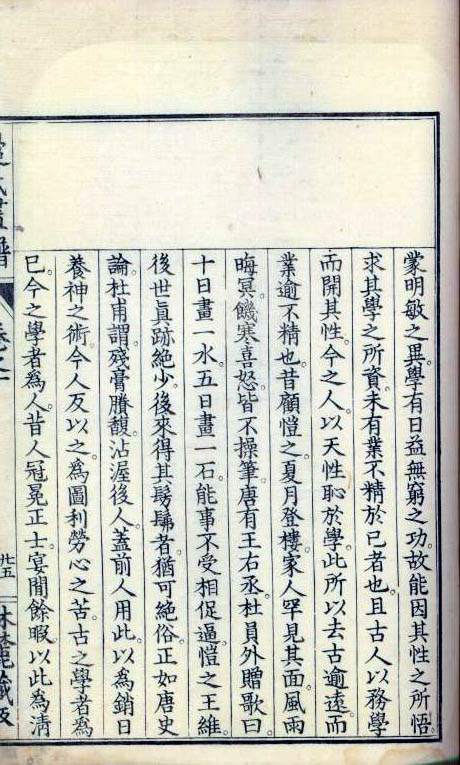 蒙明敏之異學有日益無窮之功故能因其性之所悟
求其學之所資未有業不精於已者也且古人以務學
而開其性今之人以天性恥於學此所以去古逾遠而
業逾不精也昔顧愷之夏月登樓家人罕見其面風雨
晦冥饑寒喜怒皆不操筆唐有王右丞杜員外贈歌曰
十日畫一水五日畫一石能事不受相促逼愷之王維
後世眞跡絶少後來得其髣髴者猶可絶俗正如唐史
論杜甫謂殘膏賸馥沾渥後人蓋前人用此以為銷日
養神之術今人反以之為圖利勞心之苦古之學者為
已今之學者為人昔人冠冕正士宴閒餘暇以此為清
廿五